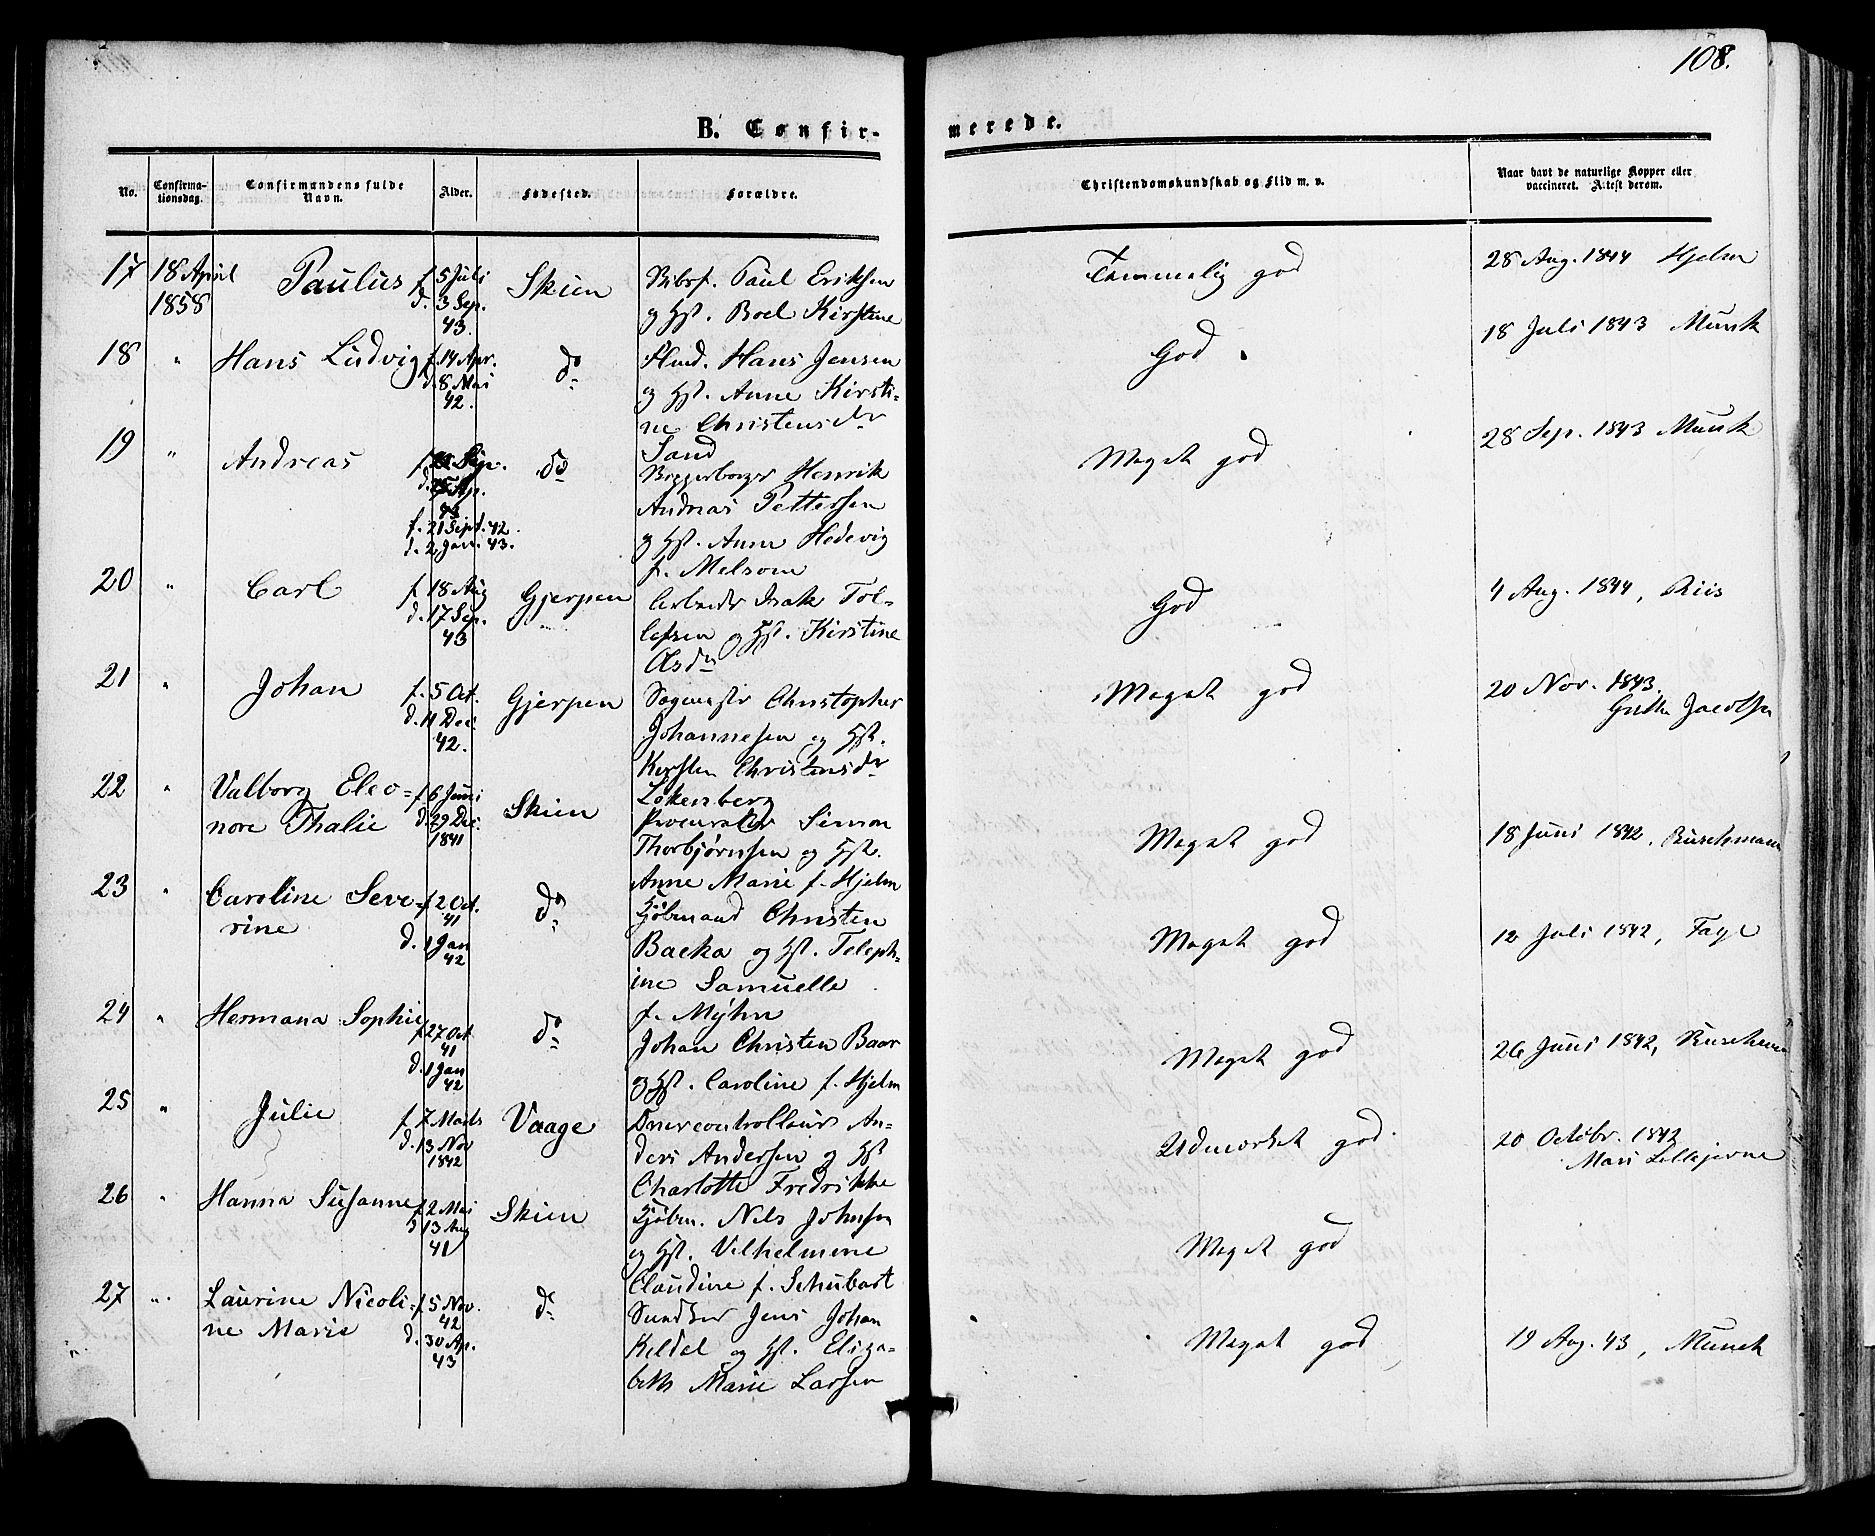 108.
B. Confir-
merede.
No.
Confirma-
tionsdag.
Confirmandens fulde
Navn.
Alder.
Fødested.
Forældre.
Christendomskundskab og Flid m. v.
Naar havt de naturlige Kopper eller
vaccineret. Attest derom.
17 18 April Paulus f. 5 Juli Skien Paul Eriksen Temmelig god 28 Aug. 1844 Hjelm
1858 d. 3 Sep. og Hst. Boel Kirstine
43.
18 " Hans Ludvig f. 14 Apr. do Hans Jensen God. 18 Juli 1843 Munk
d. 8 Mai og Hst. Anne Kirsti-
42. ne Christensdr
Sand
19 " Andreas do Henrik Meget god 28 Sep. 1843 Munk
Andreas Pettersen
f. 21 Sept. 42 og Hst. Anne Hedevig
d. 2 Jan. 43. f. Melsom
20 " Carl f. 18 Aug Gjerpen Isak Tol- God 4 Aug. 1844, Riis
d. 17 Sep. lefsen og Hst. Kirstine
43 Olsdr
21 " Johan f. 5 Oct. Gjerpen Christopher Meget god 20 Nov. 1843.
d. 11 Dec Johannesen og Hst. Jacobsen
42. Kirsten Christensdr
Løkenberg
22 " Valborg Eleo- f. 6 Juni Skien Procurator Simon Meget god 18 Juni 1842, Buschmann
nore Thalie d. 29 Dec. Thorbjørnsen og Hst.
1841 Anne Marie f. Hjelm
23 " Caroline Seve- f. 2 Oct. do Kjøbmand Christen Meget god 12 Juli 1842, Faye
rine 41
d. 1 Jan Backa og Hst. Teleph-
42 ine Samuelle
f. Myhn
24 " Hermana Sophie f. 27 Oct do Johan Christen Baar Meget god 26 Juni 1842,
41
d. 1 Jan og Hst. Caroline f. Hjelm
42
25 " Julie f. 7 Marts Vaage An- Udmærket god. 20 Octobr. 1842
d. 13 Nov ders Andersen og Hst Mari
1842 Charlotte Fredrikke
26 " Hanna Susanne f. 2 Mai Skien Kjøbm. Nils Johnsen Meget god
d. 13 Aug og Hst. Vilhelmine
41 Claudine f. Schubart
27 " Laurine Nicoli- f. 5 Nov. do Jens Johan Meget god 19 Aug. 43, Munch
42
ne Marie d. 30 Ap. Keldel og Hst. Eliza-
43 beth Marie Larsen